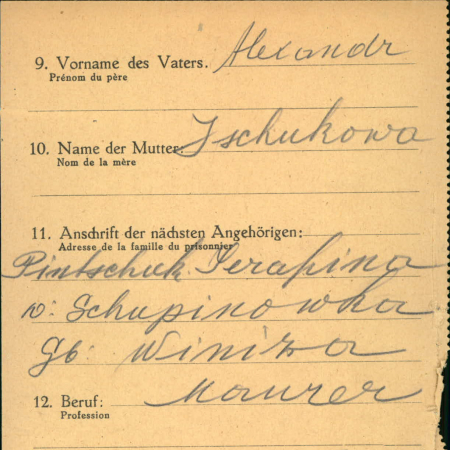 9. Vorname des Vaters. Alexandr
Prénom du père
10. Name der Mutter: Tschukowa
Nom de la mère
11. Anschrift der nächsten Angehörigen:
Adresse de la famille du prisonnier
Pintschuk Serafina
w: Schupinowka
gb: Winiza
12. Beruf: Maurer
Profession